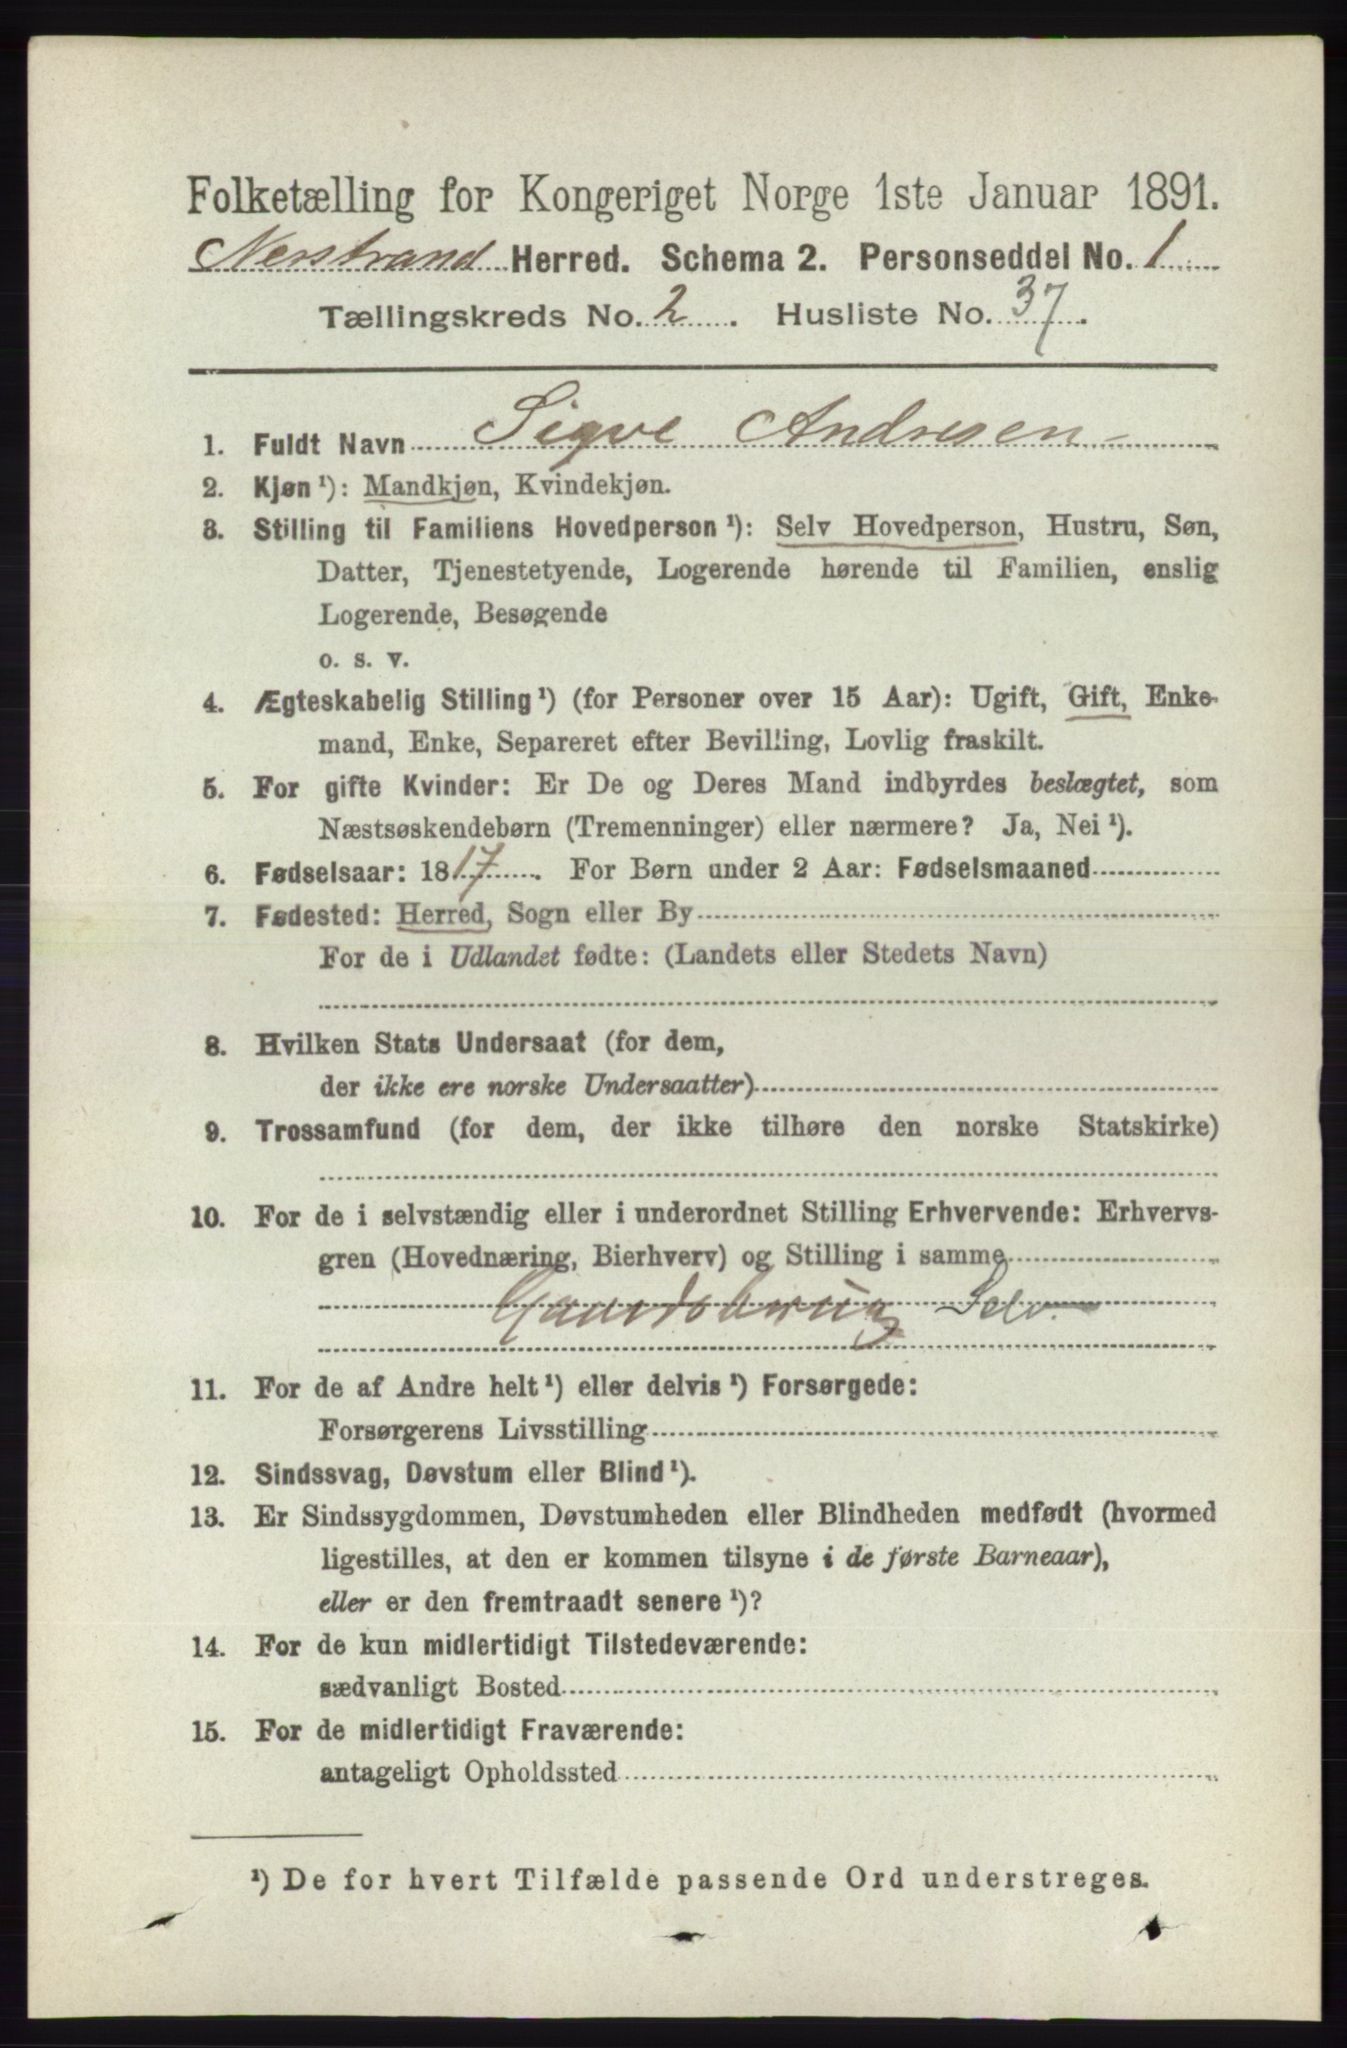 Folketælling for Kongeriget Norge 1ste Januar 1891.
Nerstrand Herred. Schema 2. Personseddel No. 1
Tællingskreds No. 2. Husliste No. 37.
1. Fuldt Navn Sigve Andresen
2. Kjøn ¹): Mandkjøn, Kvindekjøn.
3. Stilling til Familiens Hovedperson ¹): Selv Hovedperson, Hustru, Søn,
Datter, Tjenestetyende, Logerende hørende til Familien, enslig
Logerende, Besøgende
o. s. v.
4. Ægteskabelig Stilling ¹) (for Personer over 15 Aar): Ugift, Gift, Enke-
mand, Enke, Separeret efter Bevilling, Lovlig fraskilt.
5. For gifte Kvinder: Er De og Deres Mand indbyrdes beslægtet, som
Næstsøskendebørn (Tremenninger) eller nærmere? Ja, Nei ¹).
6. Fødselsaar: 1817. For Børn under 2 Aar: Fødselsmaaned
7. Fødested: Herred, Sogn eller By
For de i Udlandet fødte: (Landets eller Stedets Navn)
8. Hvilken Stats Undersaat (for dem,
der ikke ere norske Undersaatter)
9. Trossamfund (for dem, der ikke tilhøre den norske Statskirke)
10. For de i selvstændig eller i underordnet Stilling Erhvervende: Erhvervs-
gren (Hovednæring, Bierhverv) og Stilling i samme
Gaardsbrug Selv.
11. For de af Andre helt ¹) eller delvis ¹) Forsørgede:
Forsørgerens Livsstilling
12. Sindssvag, Døvstum eller Blind ¹).
13. Er Sindssygdommen, Døvstumheden eller Blindheden medfødt (hvormed
ligestilles, at den er kommen tilsyne i de første Barneaar),
eller er den fremtraadt senere ¹)?
14. For de kun midlertidigt Tilstedeværende:
sædvanligt Bosted
15. For de midlertidigt Fraværende:
antageligt Opholdssted
¹) De for hvert Tilfælde passende Ord understreges.